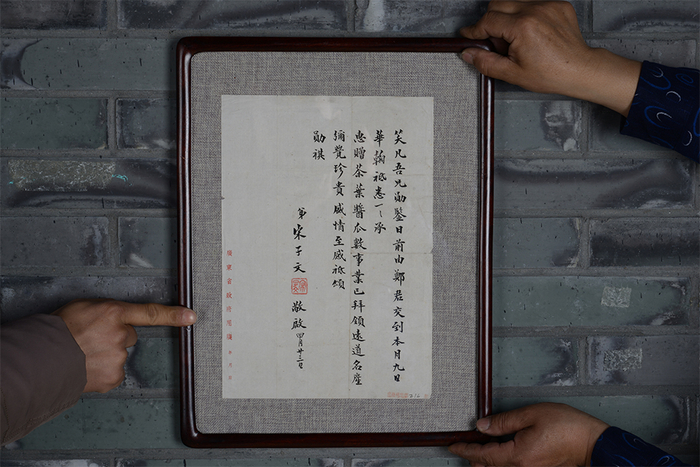 笑凡吾兄勛鑒日前由鄭君交到本月九日
華翰祗悉一一承
惠贈茶葉醬瓜數事業已拜領遠道名產
彌覺珍貴感情至感祗頌
勛祺
弟宋子文敬啟四月廿三日
廣東省政府用箋